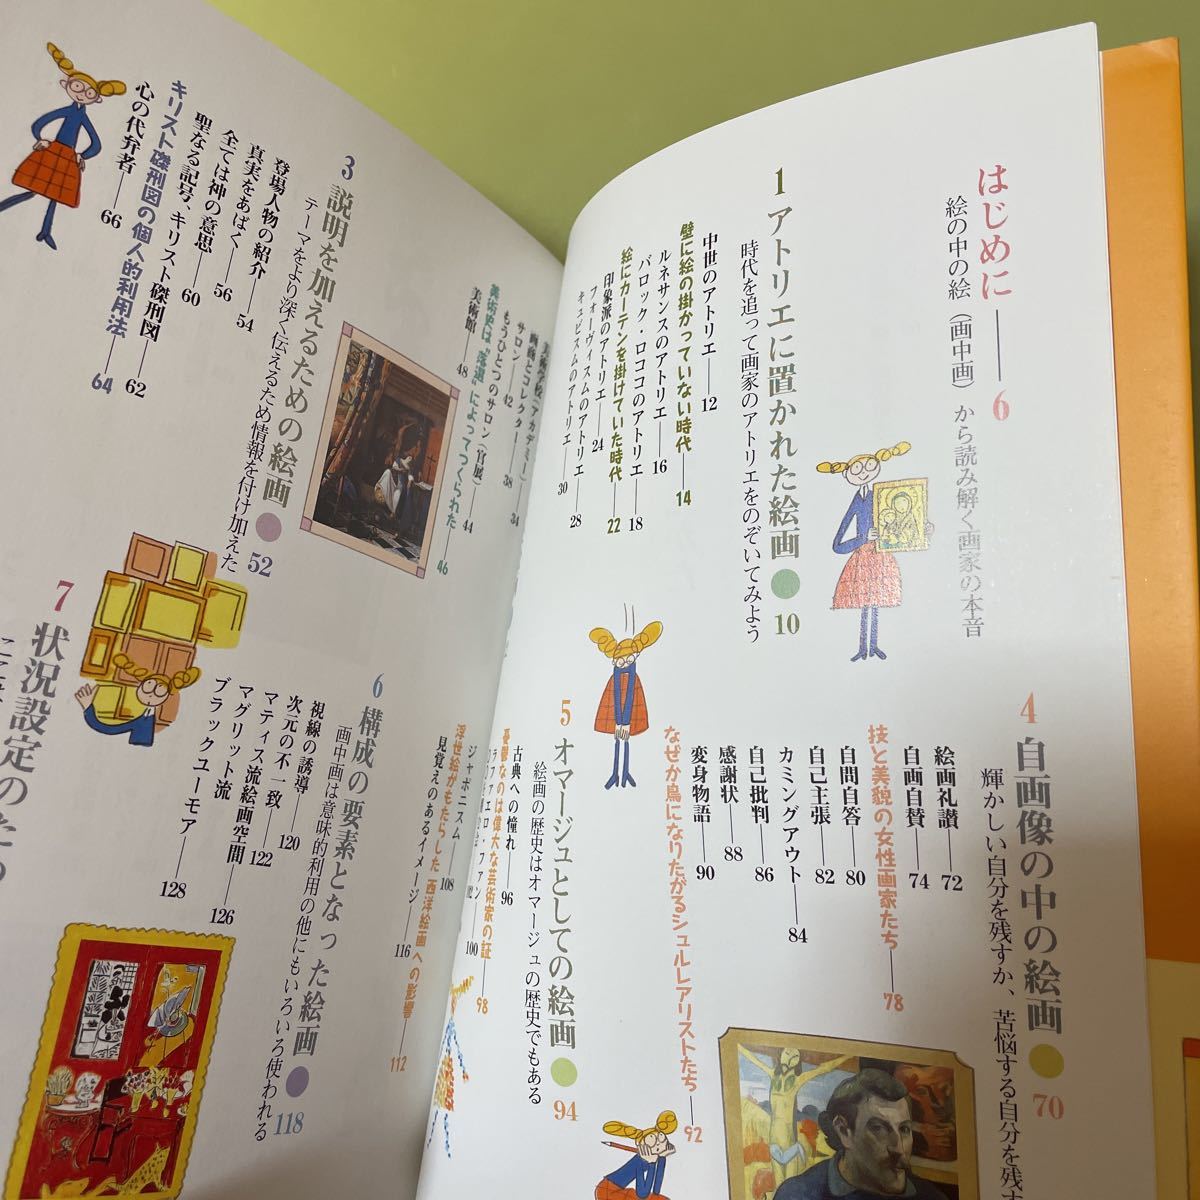 はじめに——6
絵の中の絵(画中画)から読み解く画家の本音
1 アトリエに置かれた絵画●10
時代を追って画家のアトリエをのぞいてみよう
中世のアトリエ——12
壁に絵の掛かっていない時代——14
ルネサンスのアトリエ——16
バロック・ロココのアトリエ——18
絵にカーテンを掛けていた時代——22
印象派のアトリエ——24
フォーヴィスムのアトリエ——28
キュビスムのアトリエ——30
34
画商とコレクター——38
サロン——42
もうひとつのサロン(官展)——44
美術史は"落選"によってつくられた——46
美術館——48
3 説明を加えるための絵画●52
テーマをより深く伝えるため情報を付け加えた
登場人物の紹介——54
真実をあばく——56
全ては神の意思——60
聖なる記号、キリスト磔刑図——62
キリスト磔刑図の個人的利用法——64
心の代弁者——66
4 自画像の中の絵画●70
輝かしい自分を残すか、苦悩する自分を残す
絵画礼讃——72
自画自賛——74
技と美貌の女性画家たち——78
自問自答——80
自己主張——82
カミングアウト——84
自己批判——86
感謝状——88
変身物語——90
なぜか鳥になりたがるシュルレアリストたち——92
5 オマージュとしての絵画●94
絵画の歴史はオマージュの歴史でもある
古典への憧れ——96
憂鬱なのは偉大な芸術家の証——98
100
102
ジャポニスム——108
浮世絵がもたらした西洋絵画への影響——112
見覚えのあるイメージ——116
6 構成の要素となった絵画●118
画中画は意味的利用の他にもいろいろ使われる
視線の誘導——120
次元の不一致——122
マティス流絵画空間——126
マグリット流
ブラックユーモア——128
7 状況設定のため